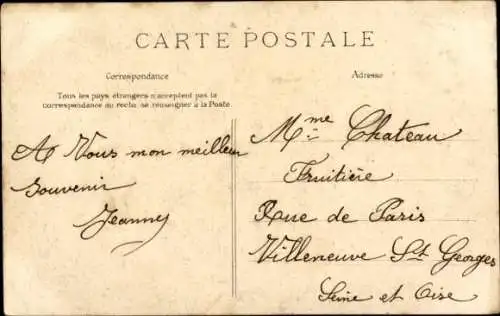 CARTE POSTALE
Correspondance
Tous les pays étrangers n'acceptent pas la
correspondance au recto, se renseigner à la Poste
A Vous mon meilleur
Souvenir
Jeanny
Adresse
Mme Chateau
Fruitière
Rue de Paris
Villeneuve St Georges
Seine et Oise